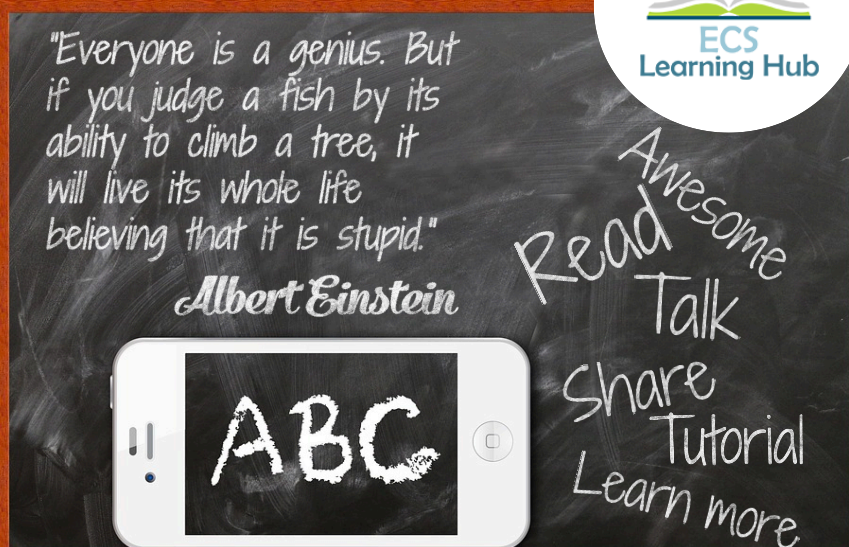 "Everyone is a genius. But
if you judge a fish by its
ability to climb a tree, it
will live its whole life
believing that it is stupid."
Albert Einstein
ABC
ECS
Learning Hub
Awesome
Read
Talk
Share
Tutorial
Learn more